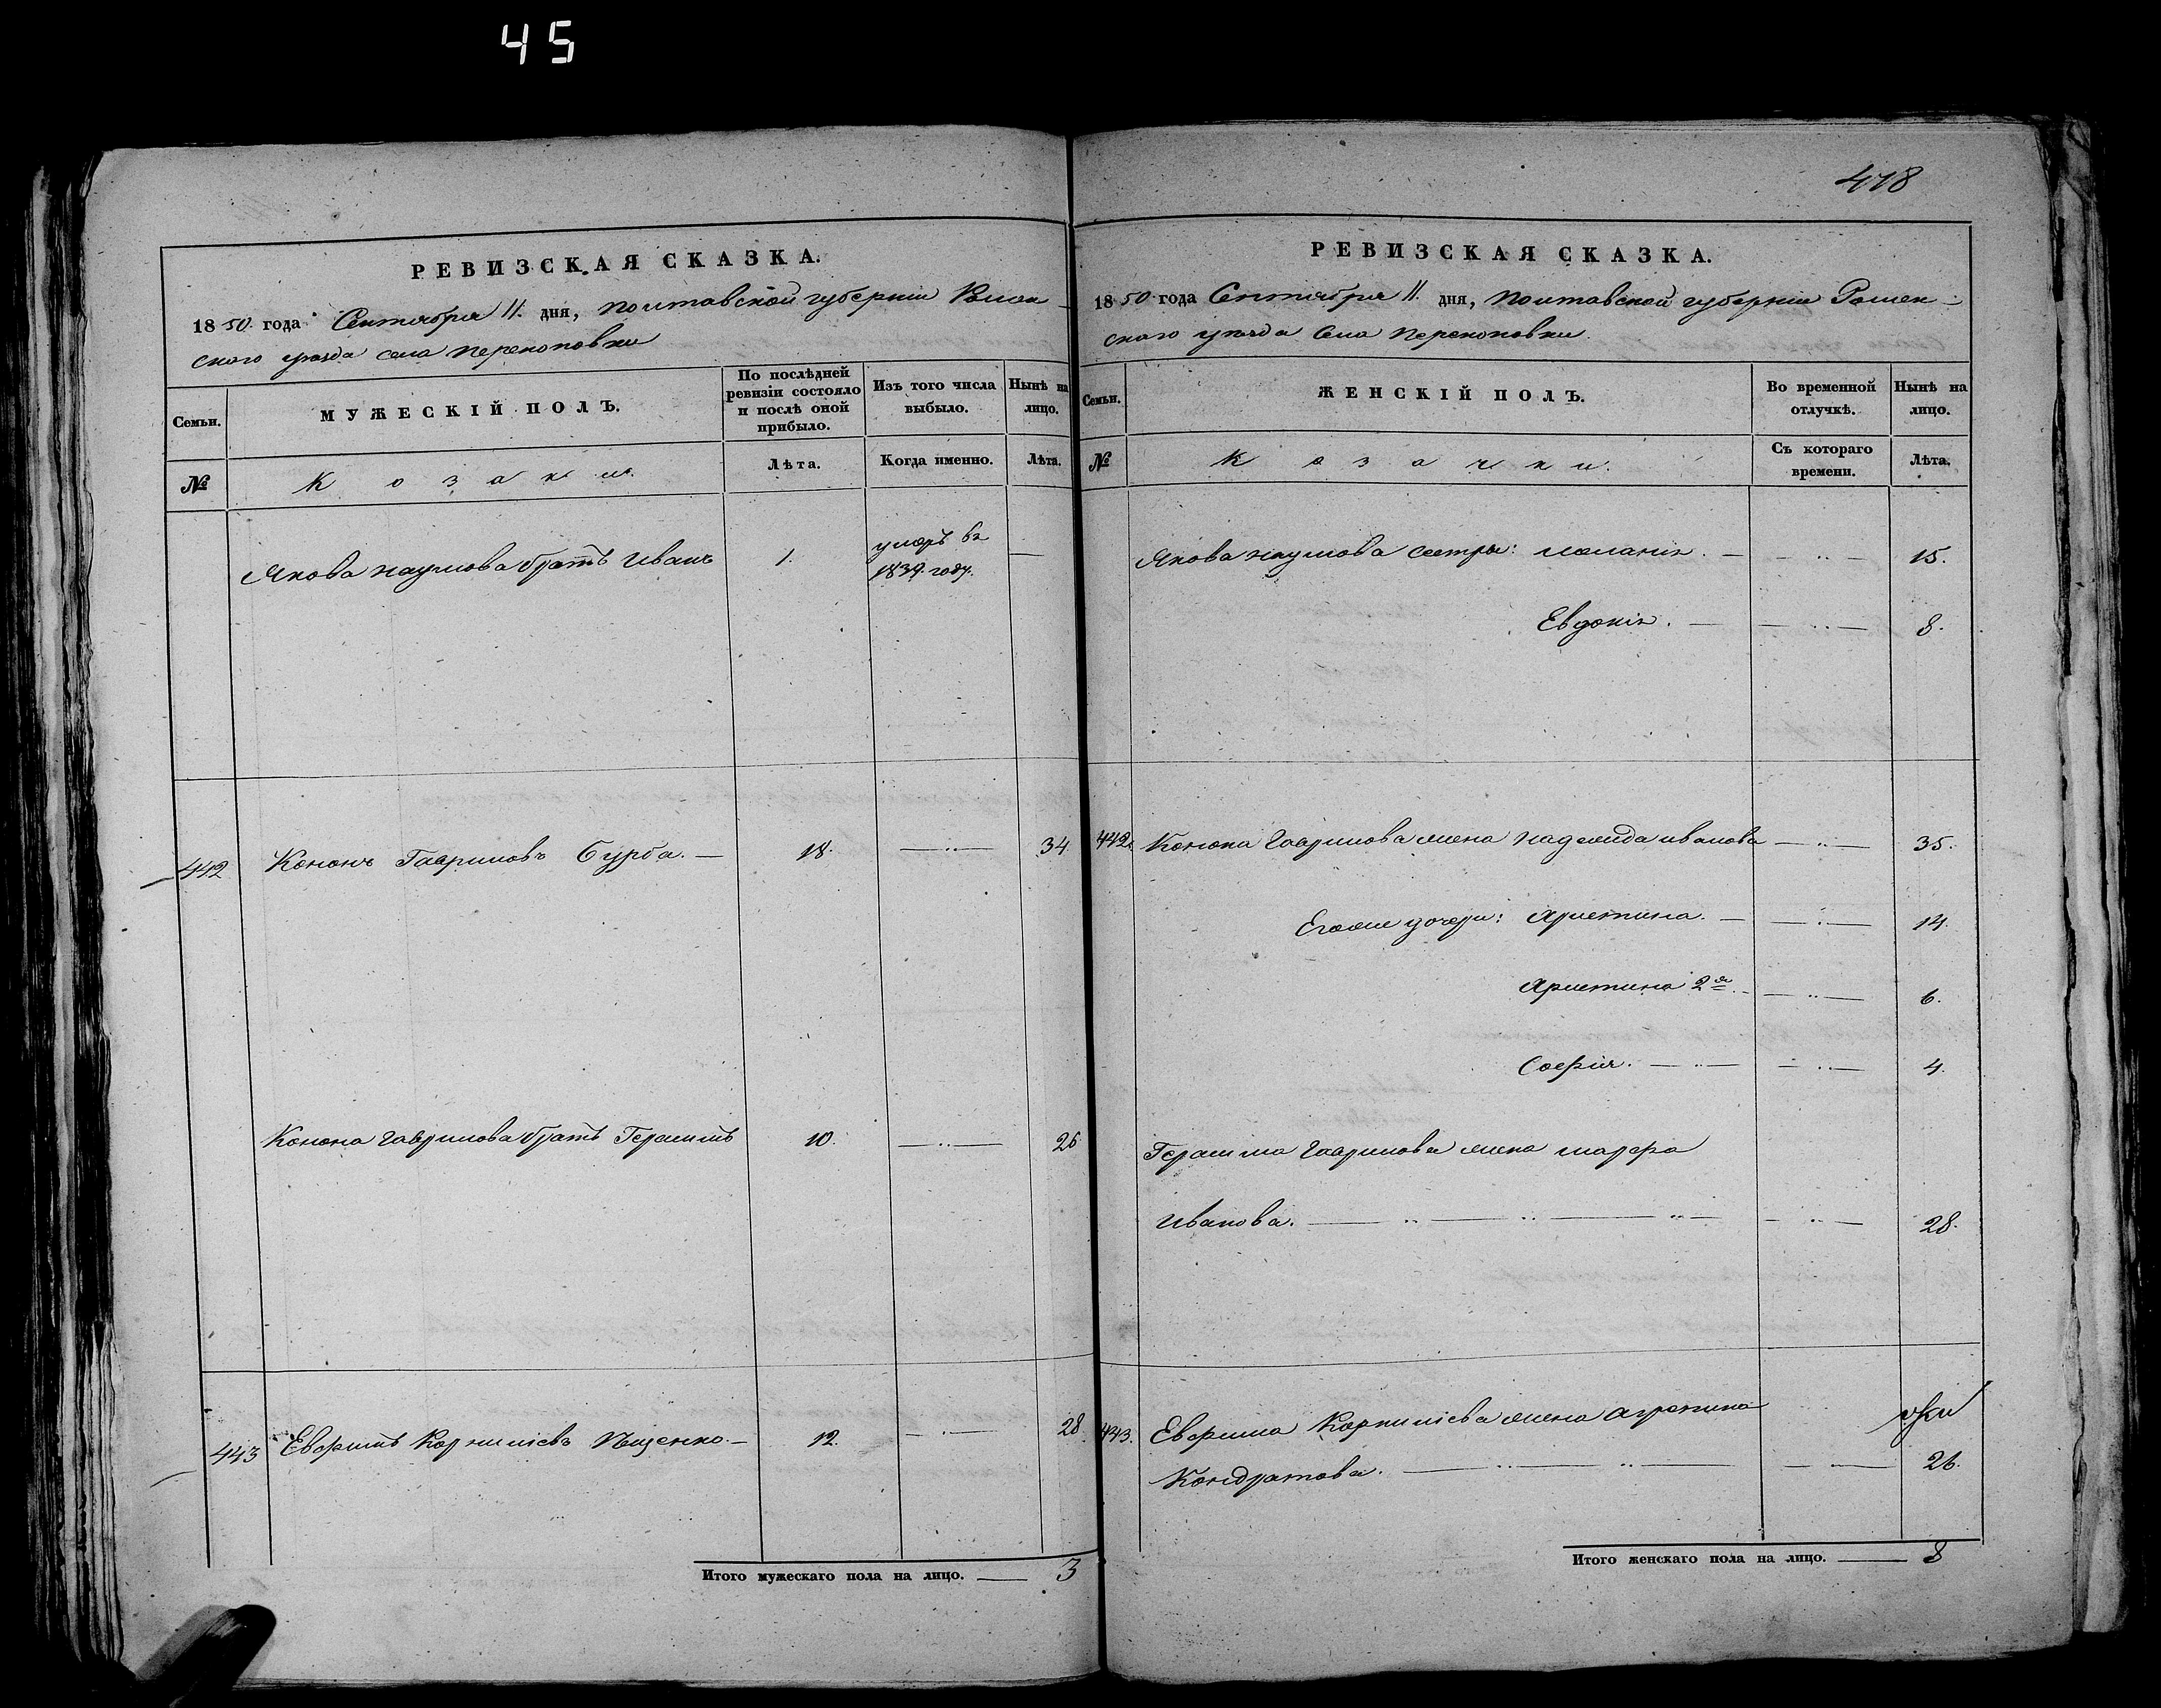 45
РЕВИЗСКАЯ СКАЗКА.
1850. года Сентября 11. дня, Полтавской губернии Ромен-
скаго уезда села Перекоповки
Семьи.
МУЖЕСКІЙ ПОЛЪ.
По послѣдней
ревизіи состояло
и послѣ оной
прибыло.
Изъ того числа
выбыло.
Нынѣ на
лицо.
№
Козаки.
Лѣта.
Когда именно.
Лѣта.
Якова Наумова братъ Иванъ 1. умеръ въ
1839. году.
442 Кононъ Гавриловъ Бурба. 18. 34
Конона Гаврилова братъ Герасимъ 10. 26
443 Евфимъ Корниліевъ Пищенко. 12. 28.
Итого мужескаго пола на лицо. 3
418
РЕВИЗСКАЯ СКАЗКА.
1850 года Сентября 11. дня, Полтавской губерніи Ромен-
скаго уезда села Перекоповки.
Семьи.
ЖЕНСКІЙ ПОЛЪ.
Во временной
отлучкѣ.
Нынѣ на
лицо.
№
Козачки.
Съ котораго
времени.
Лѣта.
Якова Наумова сестры: Меланія. 15.
Евдокія. 8.
442. Конона Гаврилова жена Надежида Иванова 35.
Егоже дочери: Христина. 14.
Христина 2я. 6.
Софія. 4.
Герасима Гаврилова жена Марфа
Иванова. 28.
443. Евфима Корниліева жена Агрепина
Кондратова. 26.
Итого женскаго пола на лицо. 8